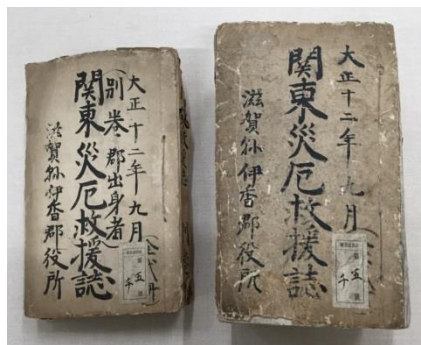 大正十二年九月
(別巻、郡出身者)
関東災厄救援誌
滋賀縣伊香郡役所
五
千
大正十二年九月
関東災厄救援誌
滋賀縣伊香郡役所
五
千